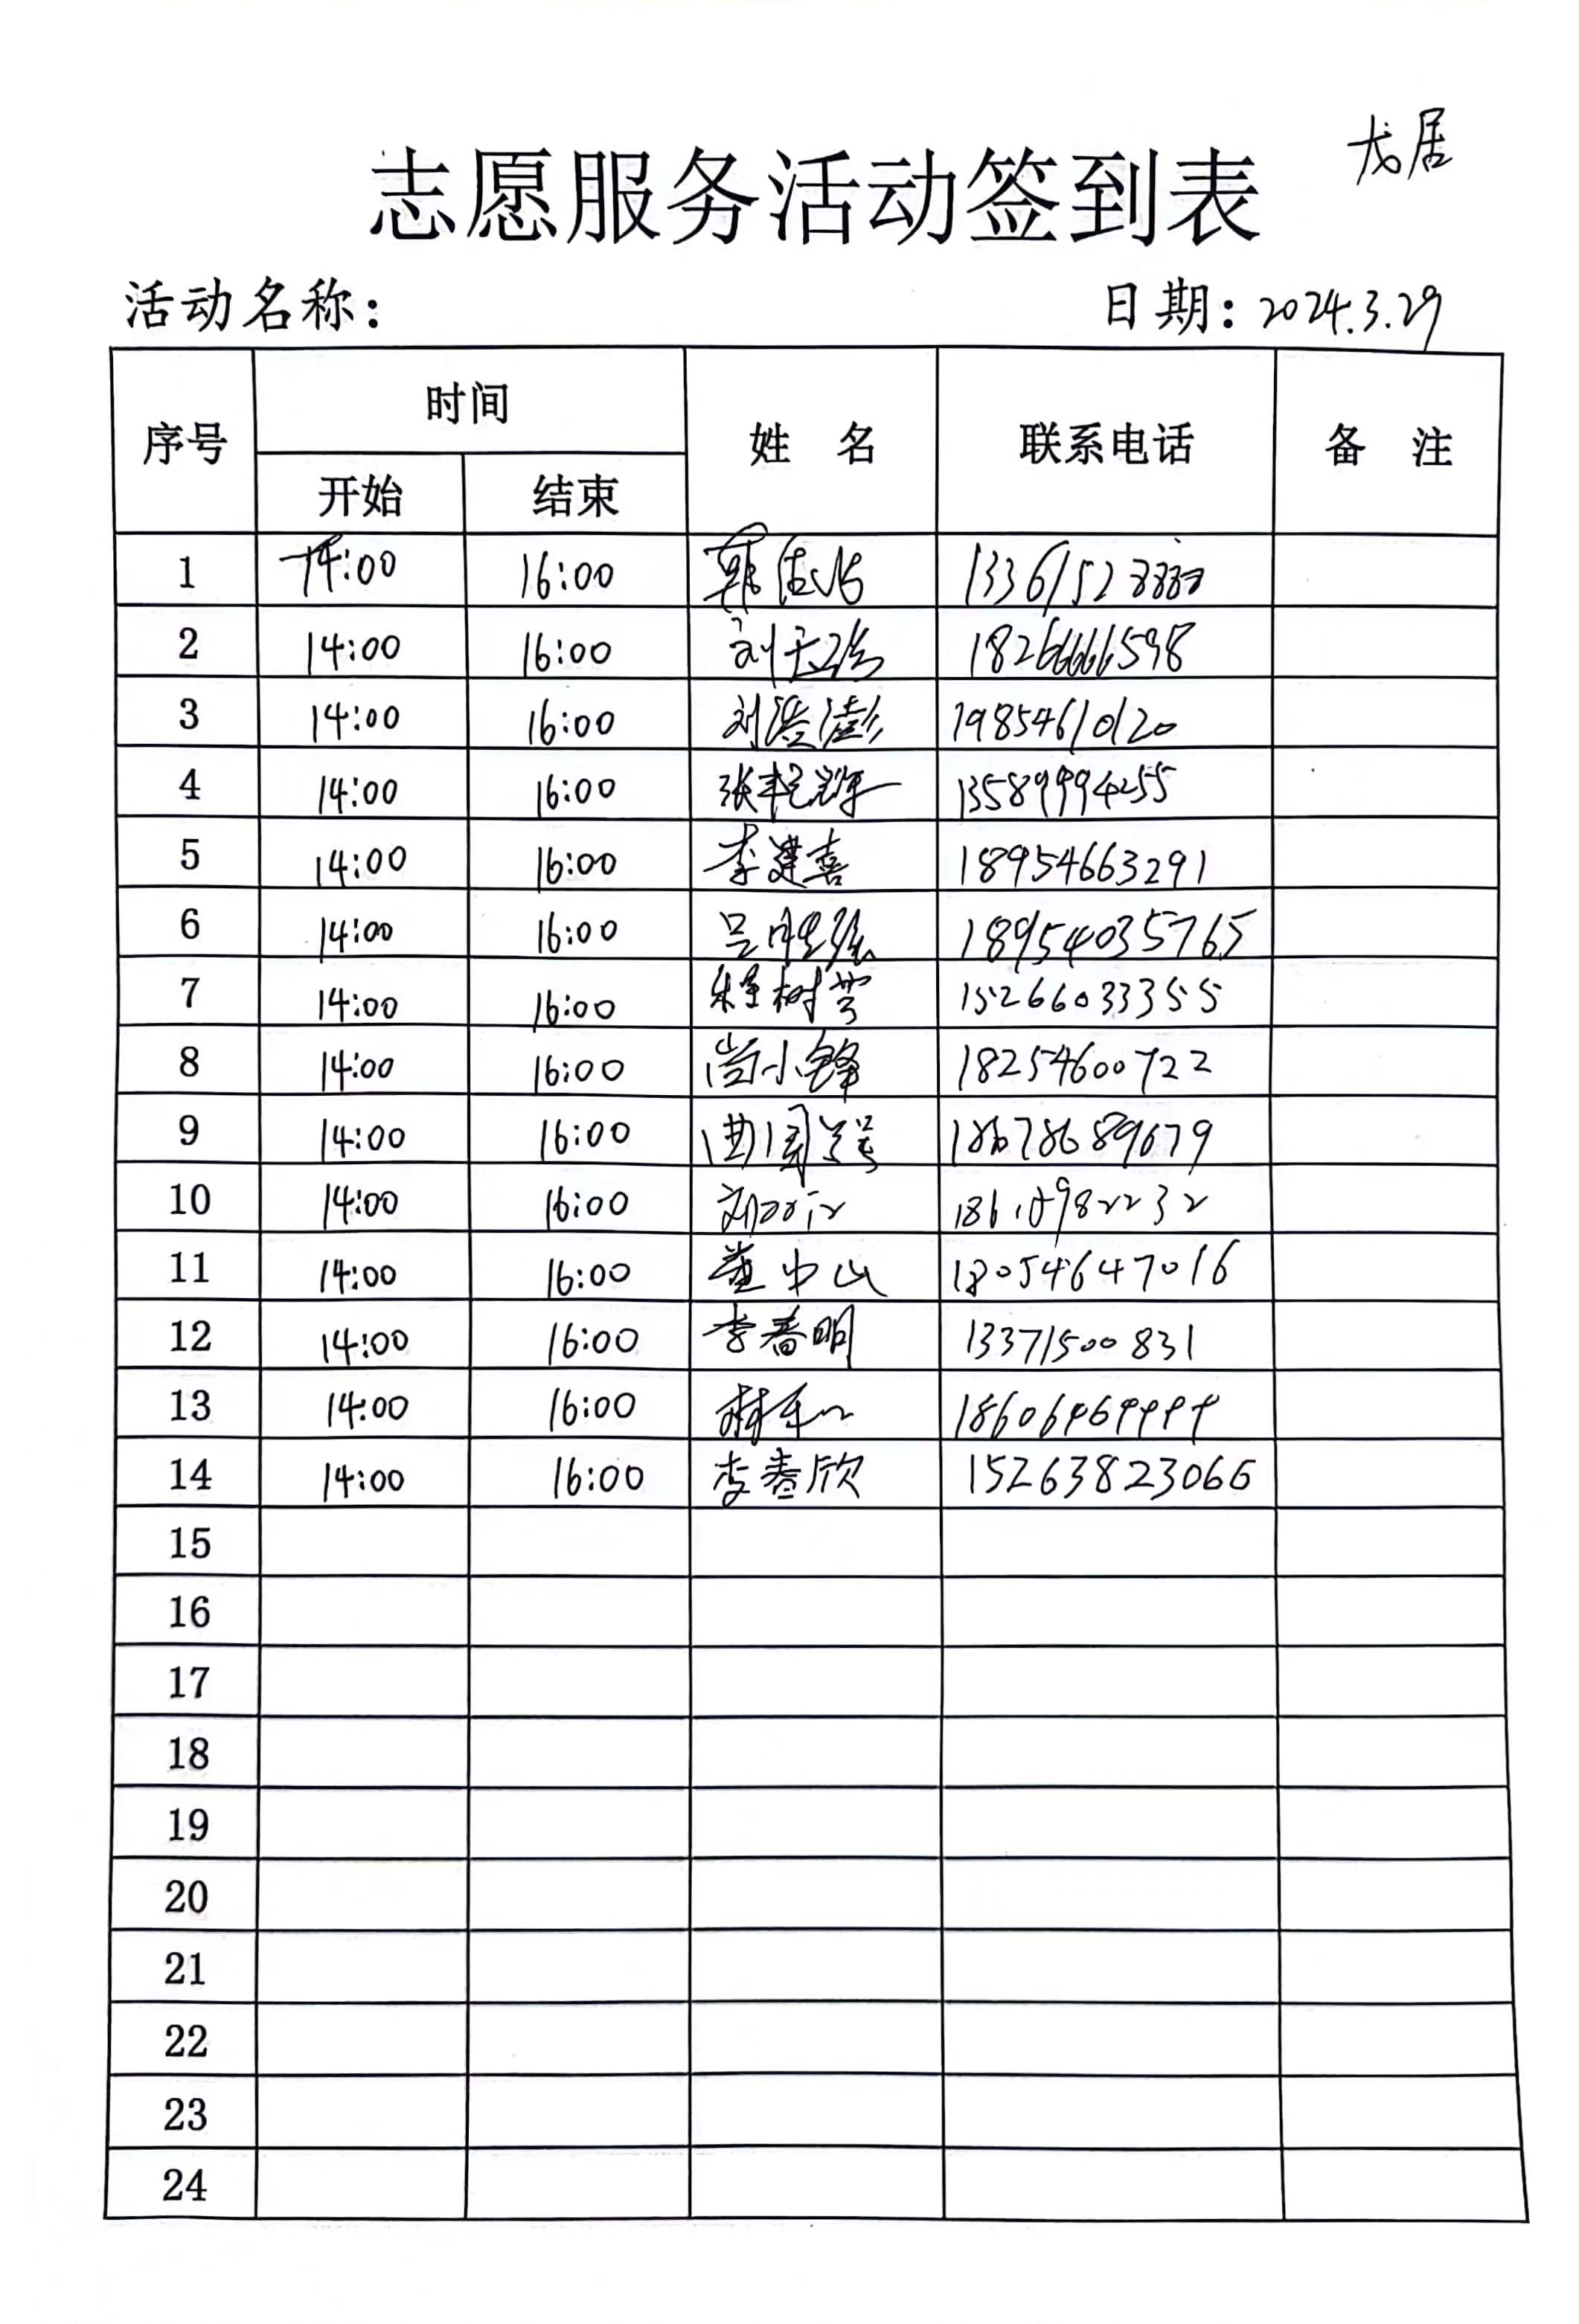 龙居
志愿服务活动签到表
活动名称： 日期：2024.3.29
序号 时间 姓 名 联系电话 备 注
开始 结束
1 14:00 16:00
2 14:00 16:00 18266666598
3 14:00 16:00 19854610120
4 14:00 16:00 13589994255
5 14:00 16:00 李建喜 18954663291
6 14:00 16:00 18954035765
7 14:00 16:00 程树雪 15266033355
8 14:00 16:00 尚小锋 18254600722
9 14:00 16:00 18678689679
10 14:00 16:00
11 14:00 16:00 董中山 18054647016
12 14:00 16:00 李春明 13371500831
13 14:00 16:00
14 14:00 16:00 李春欣 15263823066
15
16
17
18
19
20
21
22
23
24